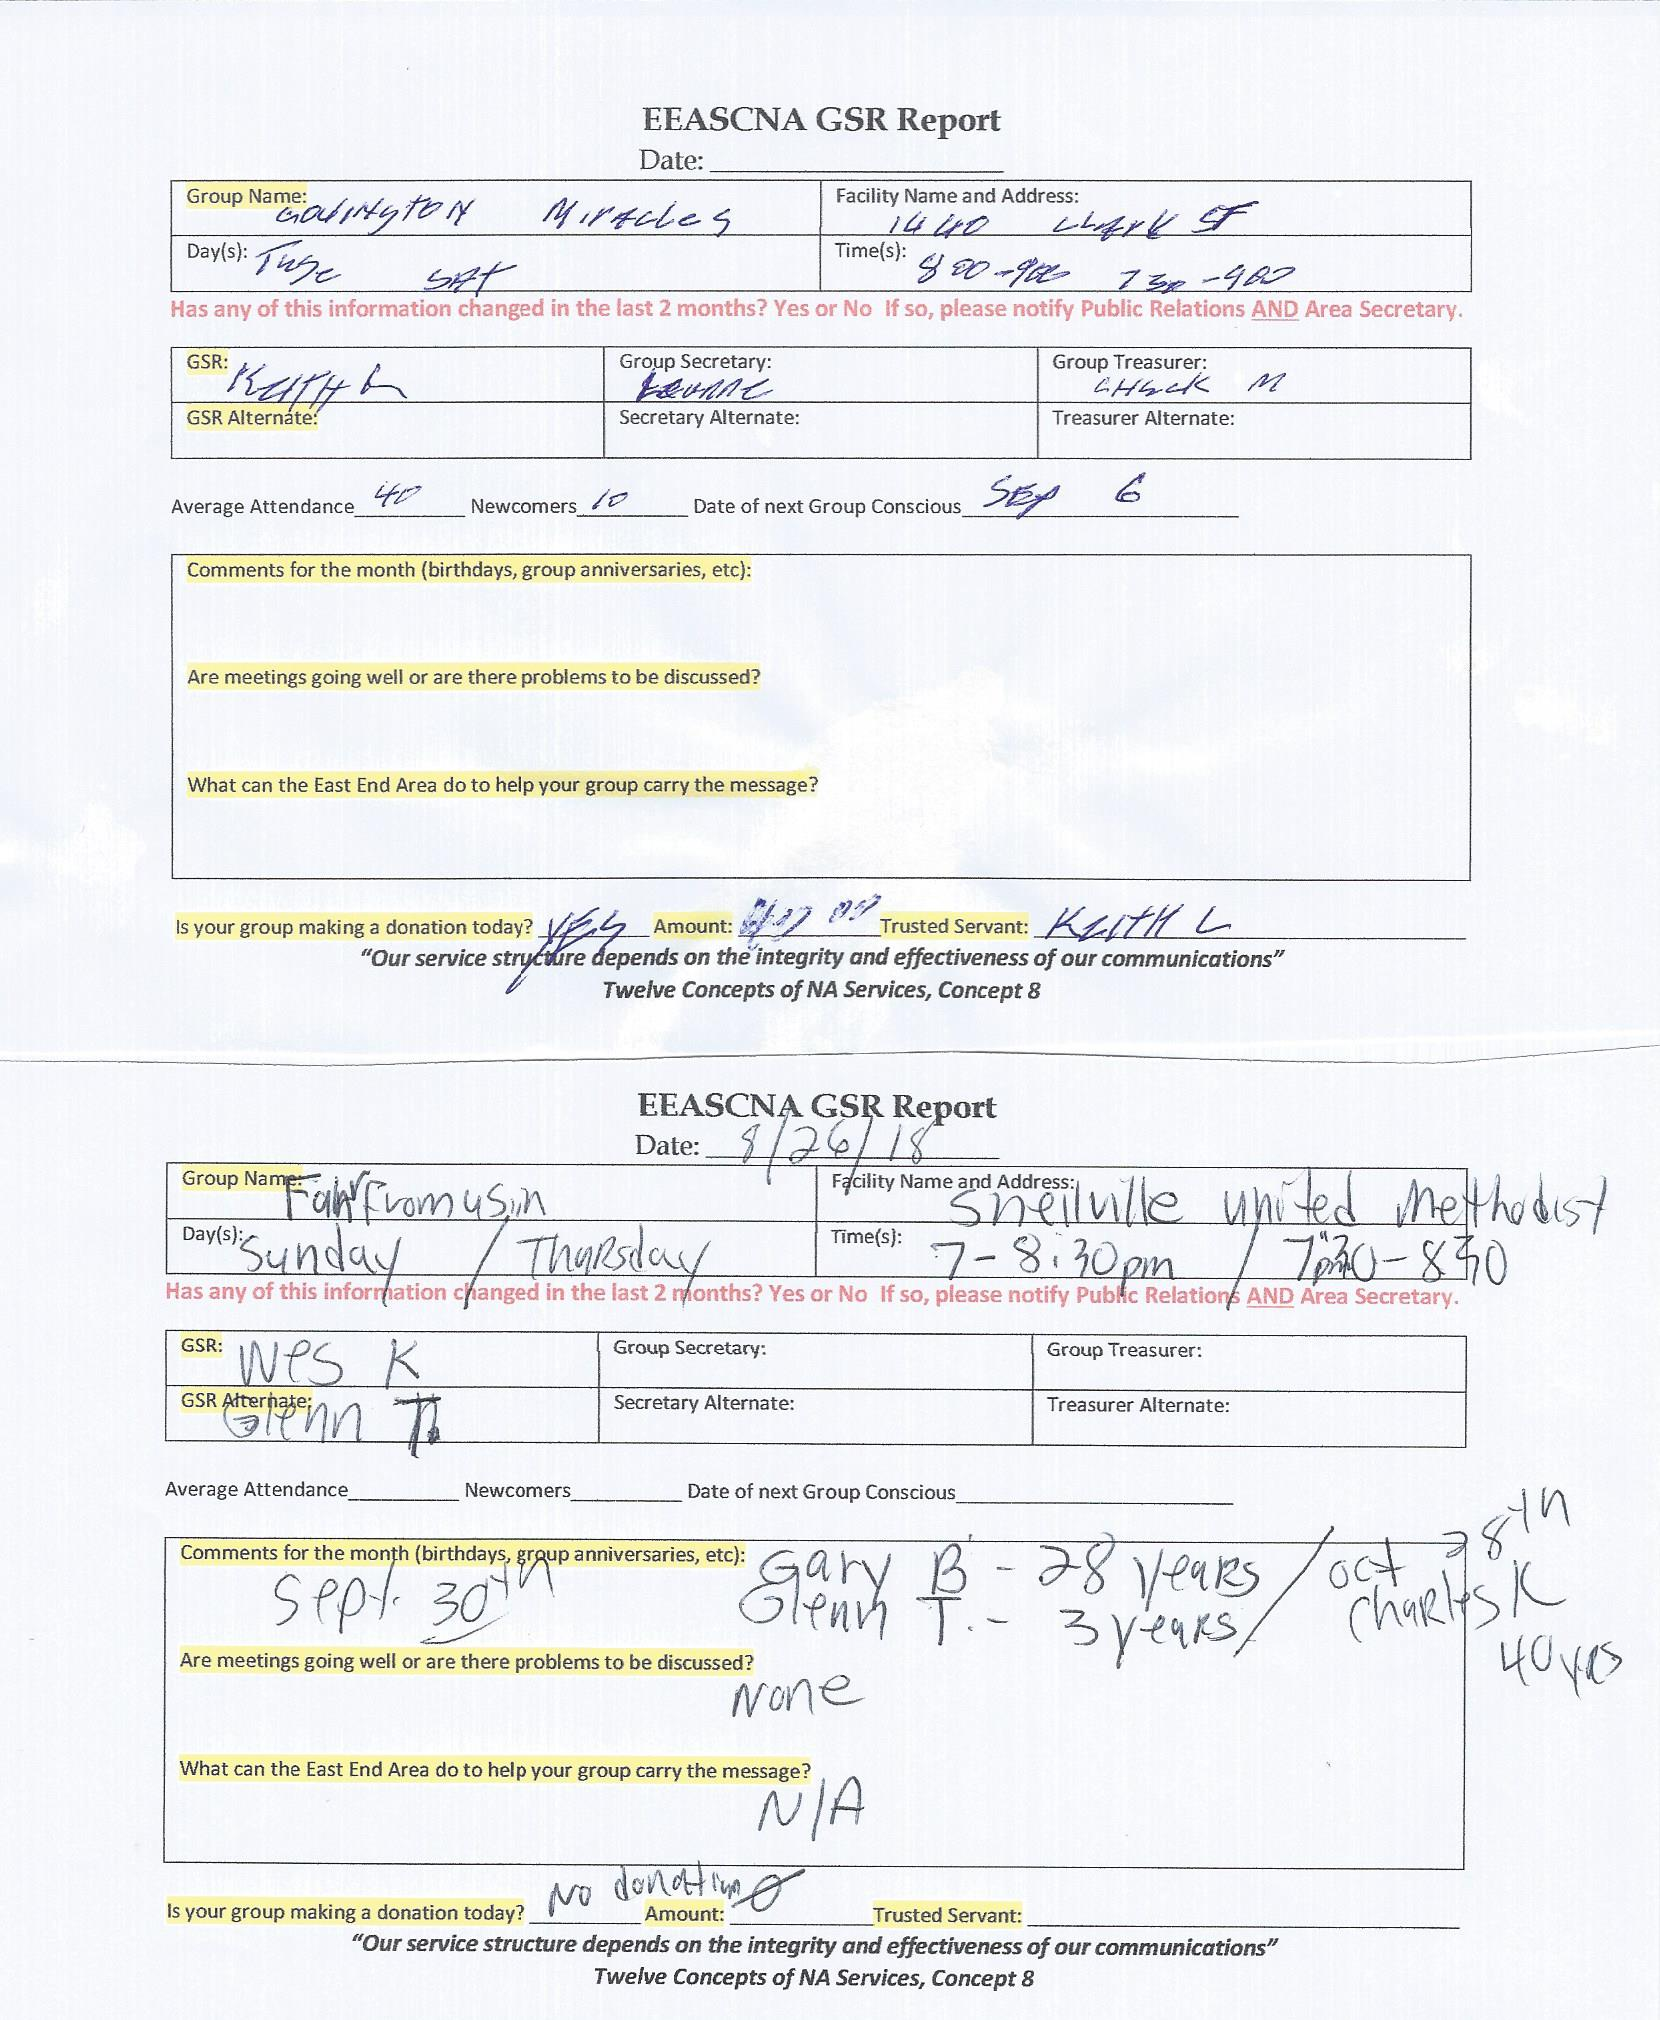 EEASCNA GSR Report
Date:
Group Name: Covington Miracles
Facility Name and Address: 1440 Clark ST
Day(s): Tuse SAT
Time(s): 800-900 730-900
Has any of this information changed in the last 2 months? Yes or No If so, please notify Public Relations AND Area Secretary.
GSR: KEITH L
Group Secretary:
Group Treasurer: CHUCK M
GSR Alternate:
Secretary Alternate:
Treasurer Alternate:
Average Attendance 40 Newcomers 10 Date of next Group Conscious SEP 6
Comments for the month (birthdays, group anniversaries, etc):
Are meetings going well or are there problems to be discussed?
What can the East End Area do to help your group carry the message?
Is your group making a donation today? YES Amount: Trusted Servant: KEITH L
"Our service structure depends on the integrity and effectiveness of our communications"
Twelve Concepts of NA Services, Concept 8
EEASCNA GSR Report
Date: 8/26/18
Group Name: Fahrfromusin
Facility Name and Address: Snellville United Methodist
Day(s): Sunday / Thursday
Time(s): 7-8:30pm / 7:30-830
Has any of this information changed in the last 2 months? Yes or No If so, please notify Public Relations AND Area Secretary.
GSR: Wes K
Group Secretary:
Group Treasurer:
GSR Alternate: Glenn T.
Secretary Alternate:
Treasurer Alternate:
Average Attendance Newcomers Date of next Group Conscious
Comments for the month (birthdays, group anniversaries, etc): Gary B - 28 years / Oct 28th
Sept. 30th Glenn T. - 3 years / Charles K
40 yrs
Are meetings going well or are there problems to be discussed?
None
What can the East End Area do to help your group carry the message?
N/A
Is your group making a donation today? No donation Amount: Trusted Servant:
"Our service structure depends on the integrity and effectiveness of our communications"
Twelve Concepts of NA Services, Concept 8